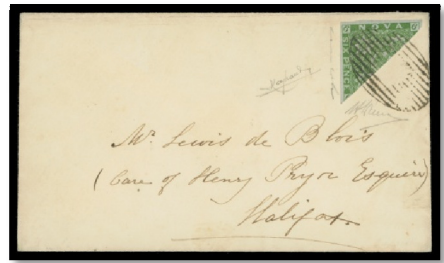 SIX PENCE
NOVA
Mr. Lewis de Blois
(Care of Henry Pryor Esquire)
Halifax